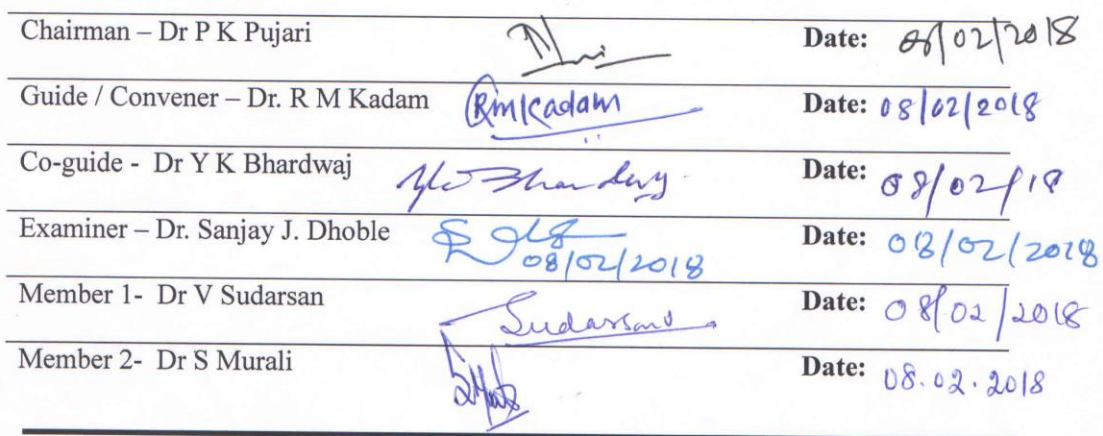 Chairman – Dr P K Pujari Date: 08/02/2018
Guide / Convener – Dr. R M Kadam RmKadam Date: 08/02/2018
Co-guide - Dr Y K Bhardwaj YK Bhardwaj Date: 08/02/18
Examiner – Dr. Sanjay J. Dhoble Date: 08/02/2018
08/02/2018
Member 1- Dr V Sudarsan Sudarsan Date: 08/02/2018
Member 2- Dr S Murali Date: 08.02.2018